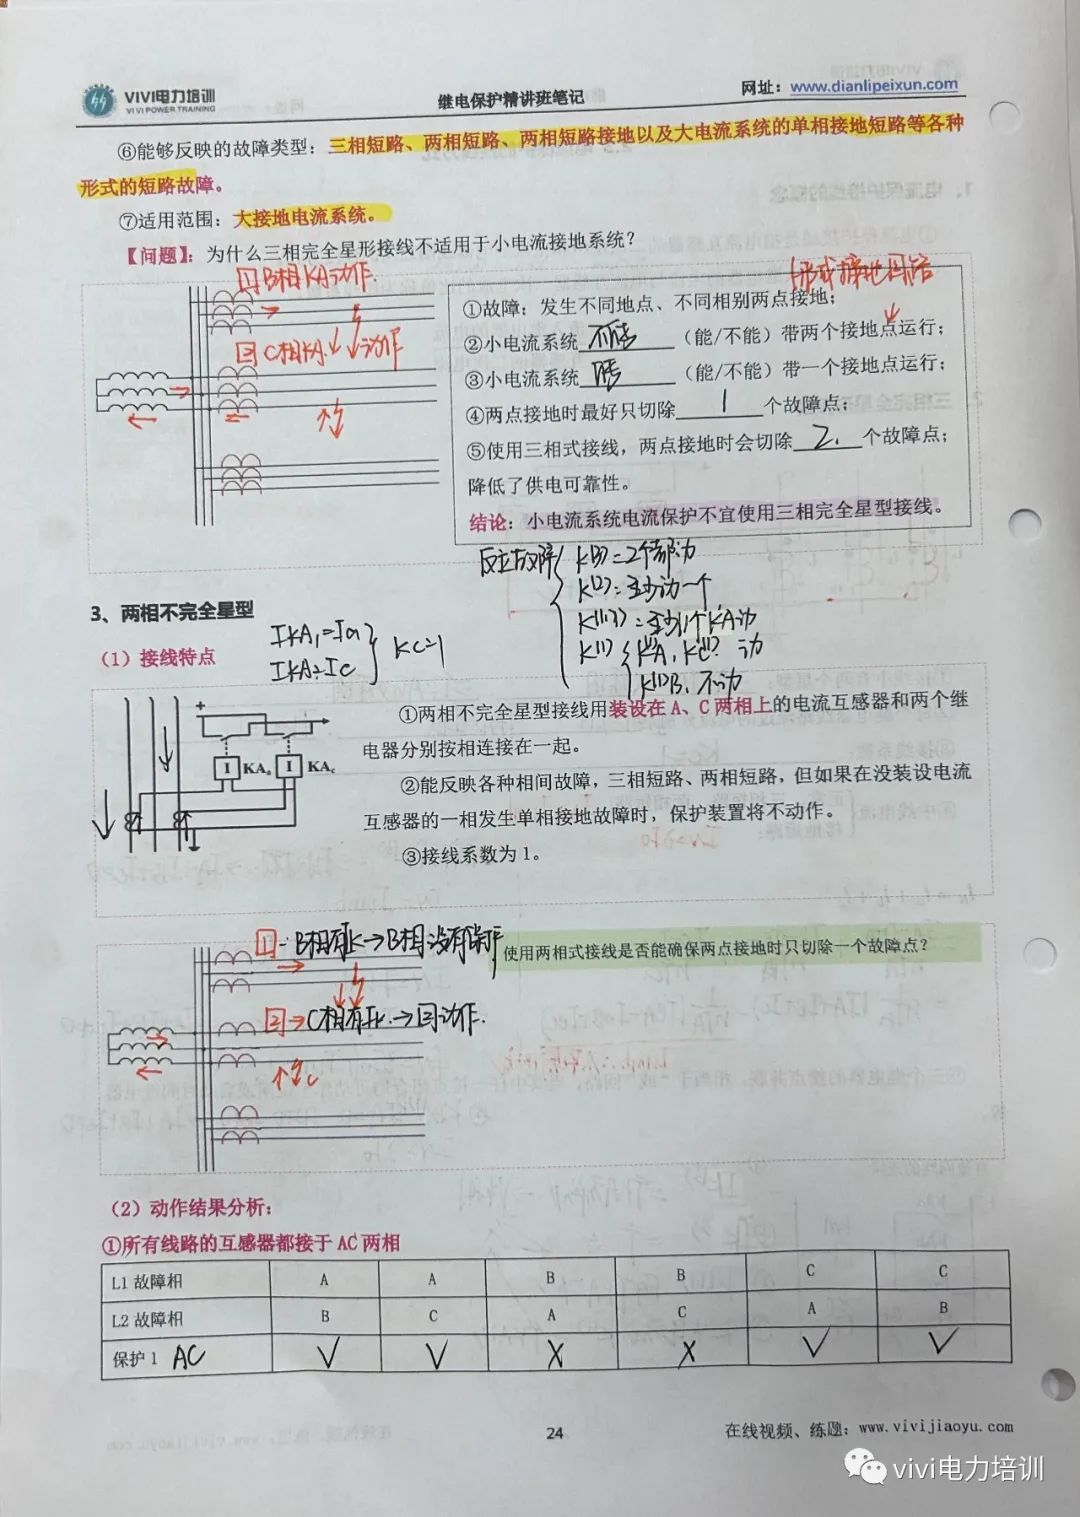 VIVI电力培训
VIVI POWER TRAINING
继电保护精讲班笔记
网址：www.dianlipeixun.com
⑥能够反映的故障类型：三相短路、两相短路、两相短路接地以及大电流系统的单相接地短路等各种
形式的短路故障。
⑦适用范围：大接地电流系统。
【问题】：为什么三相完全星形接线不适用于小电流接地系统？
1 B相KA动作.
2 C相KA.动作
形成接地回路
①故障：发生不同地点、不同相别两点接地；
②小电流系统 不能 （能/不能）带两个接地点运行；
③小电流系统 能 （能/不能）带一个接地点运行；
④两点接地时最好只切除 1 个故障点；
⑤使用三相式接线，两点接地时会切除 2. 个故障点；
降低了供电可靠性。
结论：小电流系统电流保护不宜使用三相完全星型接线。
反应故障
K(3)=2个都动
K(2)：至少动一个
K(1,1)=至少1个KA动
K(1) K(1)A、K(1)C 动
K(1)B、不动
3、两相不完全星型
（1）接线特点
IKA1=Ia
IKA2=Ic
Kc=1
①两相不完全星型接线用装设在 A、C 两相上的电流互感器和两个继
电器分别按相连接在一起。
②能反映各种相间故障，三相短路、两相短路，但如果在没装设电流
互感器的一相发生单相接地故障时，保护装置将不动作。
③接线系数为 1。
+
I KAa I KAc
1 B相有Ik→B相没有保护
使用两相式接线是否能确保两点接地时只切除一个故障点？
2→C相有Ik.→2动作.
C
（2）动作结果分析：
①所有线路的互感器都接于 AC 两相
L1 故障相 A A B B C C
L2 故障相 B C A C A B
保护 1 AC √ √ X X √ √
24
在线视频、练题：www.vivijiaoyu.com
vivi电力培训